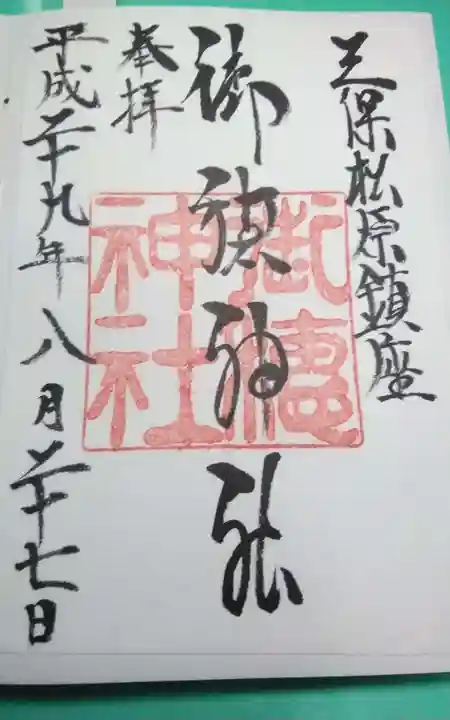 三保松原鎮座
御穂神社
奉拝
平成二十九年八月二十七日
御穂
神社